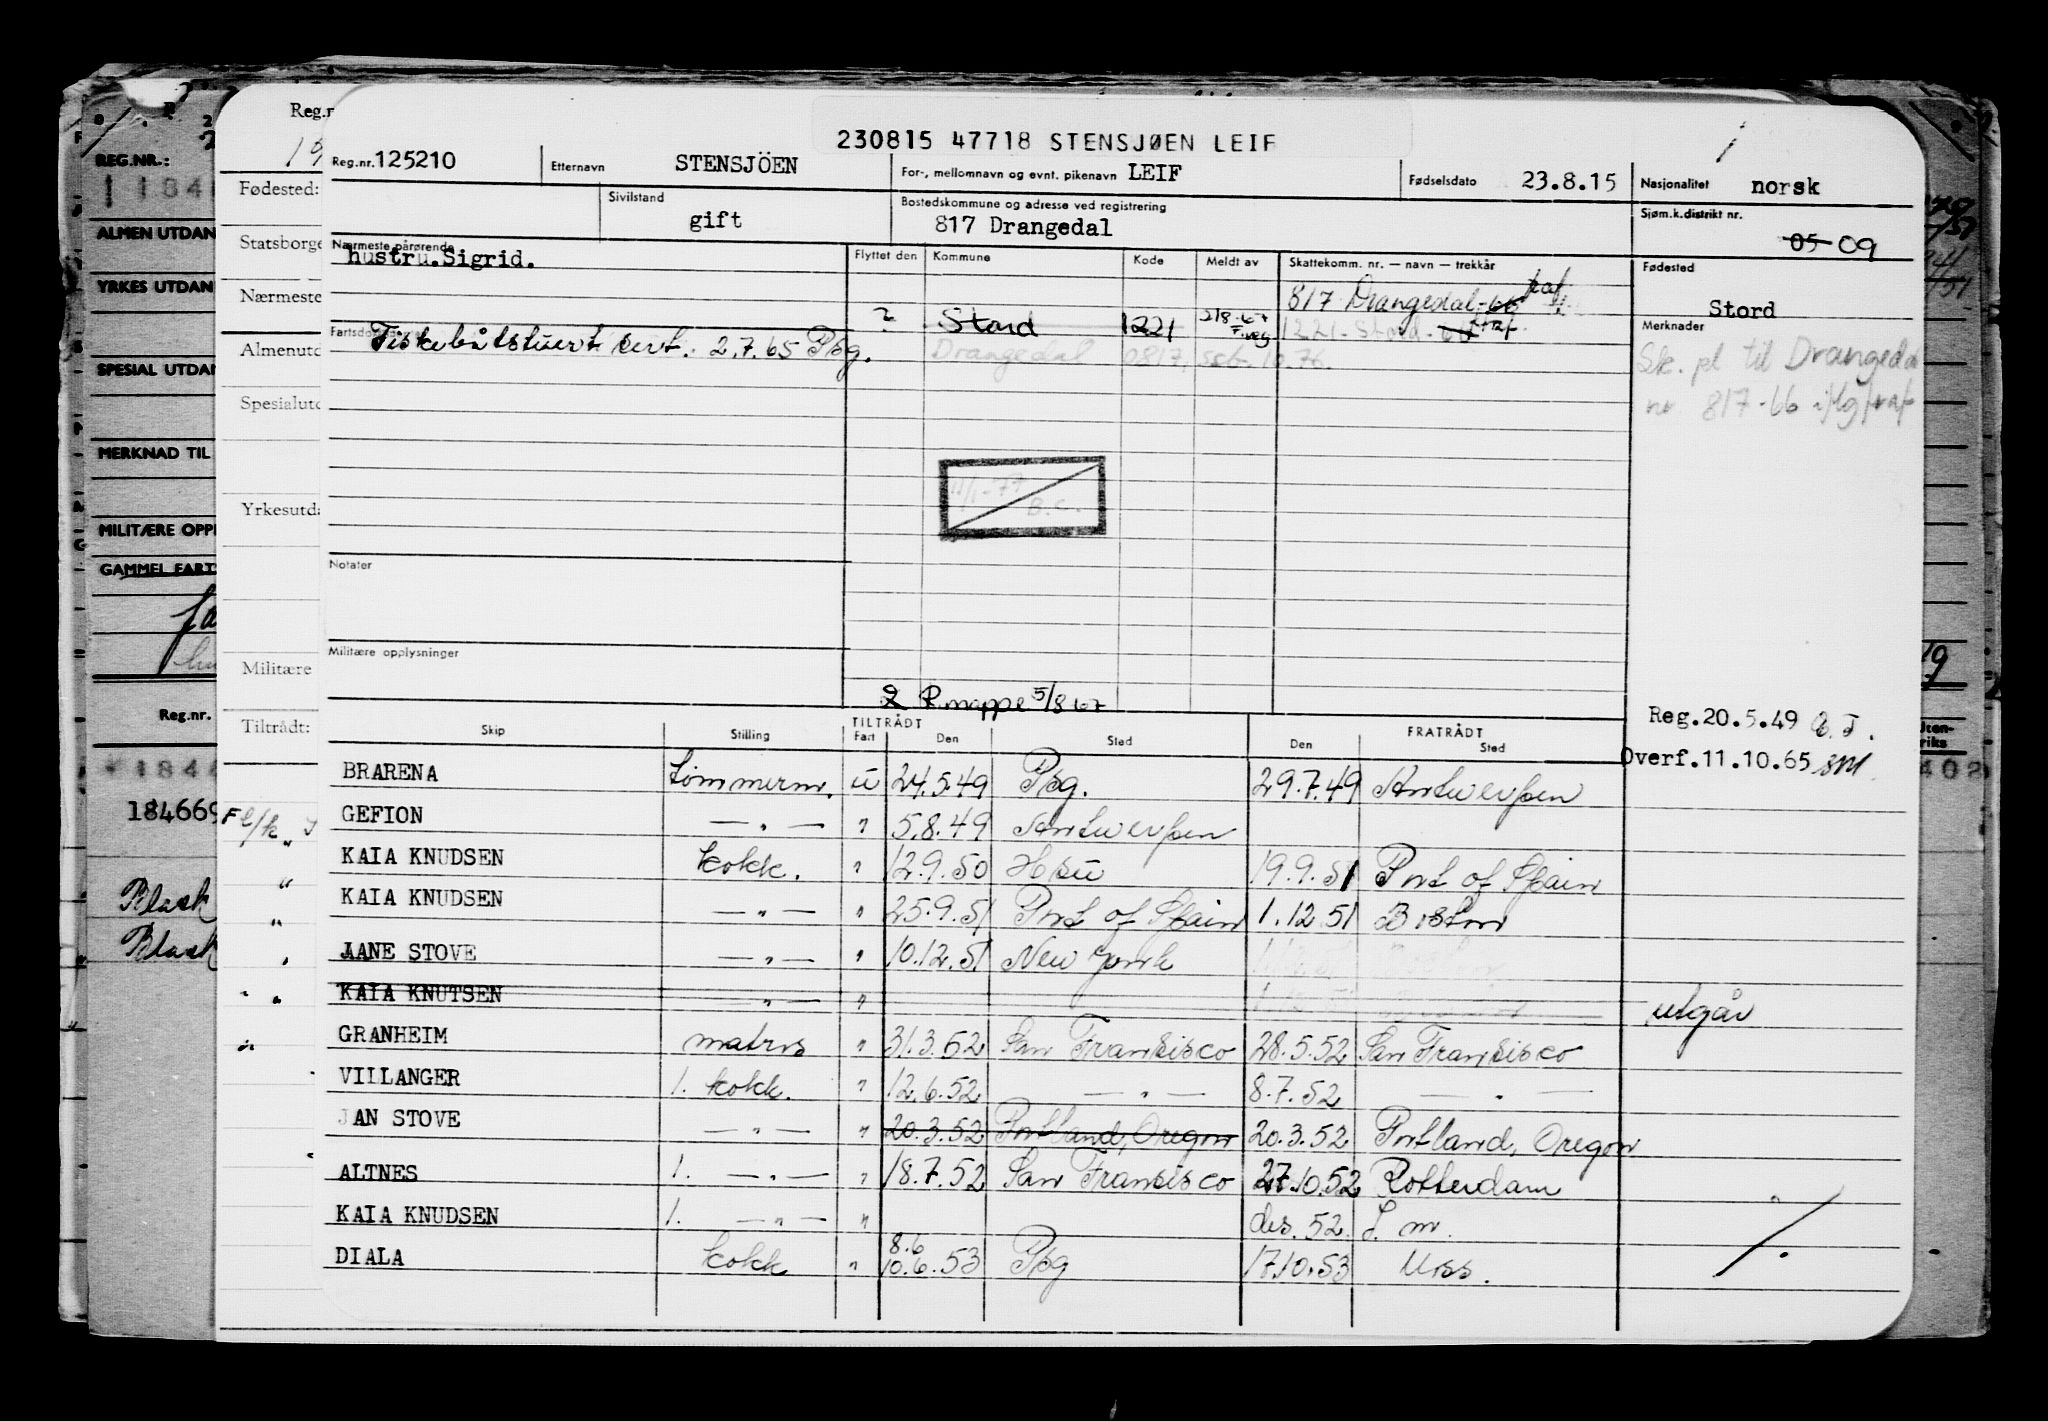 230815 47718 STENSJØEN LEIF
Reg.nr. 125210 Etternavn STENSJÖEN For-, mellomnavn og evnt. pikenavn LEIF Fødselsdato 23.8.15 Nasjonalitet norsk
Sivilstand gift Bostedskommune og adresse ved registrering 817 Drangedal Sjøm.k.distrikt nr. 05 09
Nærmeste pårørende hustru.Sigrid. Flyttet den Kommune Kode Meldt av Skattekomm. nr. — navn — trekkår Fødested Stord
817 Drangedal-66
? Stord 1221 218-67
1221-Stord-
Fiskebåtstuert sert. 2.7.65 Pbg.
Drangedal 0817, ssb. 10.76.
Merknader
Sk. pl til Drangedal
nr 817-66
11/1-77 B.C.
Notater
Militære opplysninger
R.mappe 5/8 67
Reg.20.5.49
Overf.11.10.65
Skip Stilling TILTRÅDT Fart Den Sted FRATRÅDT Den Sted
BRARENA tømmerm. u 24.5.49 Pbg. 29.7.49 Antwerpen
GEFION — " — " 5.8.49 Antwerpen
KAIA KNUDSEN kokk. " 12.9.50 19.9.51 Port of Spain
KAIA KNUDSEN — " — " 25.9.51 Port of Spain 1.12.51 Boston
JANE STOVE — " — " 10.12.51 New York
KAIA KNUTSEN — " — " 1.12.51 utgår
GRANHEIM matros " 31.3.52 San Fransisco 28.5.52 San Fransisco
VILLANGER 1. kokk. " 12.6.52 — " — 8.7.52 — " —
JAN STOVE — " — " 20.3.52 Portland, Oregon 20.3.52 Portland, Oregon
ALTNES 1. — " — " 18.7.52 San Fransisco 27.10.52 Rotterdam
KAIA KNUDSEN 1. — " — " des. 52. S. m.
DIALA kokk " 8.6 10.6.53 Pbg 17.10.53 Miss.
Reg.n
19
Fødested:
Statsborge
Nærmeste
Almenutd
Spesialutd
Yrkesutda
Militære
Tiltrådt:
REG.NR.:
ALMEN UTDAN
YRKES UTDAN
SPESIAL UTDAN
MERKNAD TIL
MILITÆRE OPPL
GAMMEL FART
Reg.nr.
184669
Black
Black